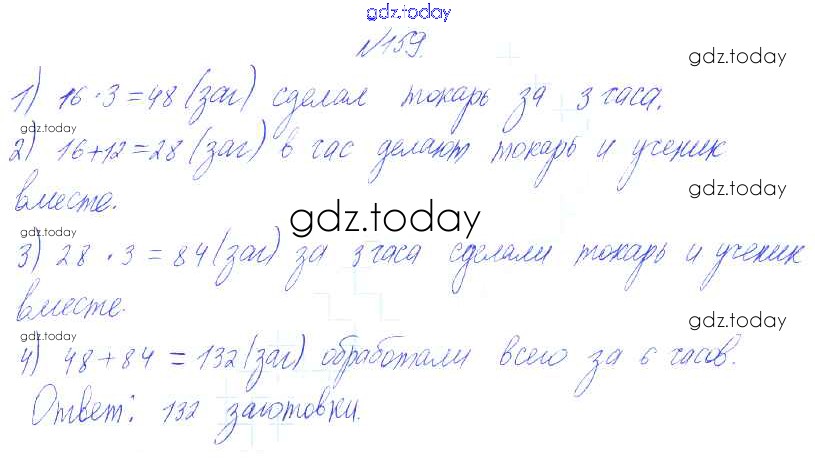 gdz.today
№159.
gdz.today
1) 16·3=48 (заг) сделал токарь за 3 часа.
gdz.today
2) 16+12=28 (заг) в час делают токарь и ученик
gdz.today
вместе.
gdz.today
gdz.today
3) 28·3=84 (заг) за 3 часа сделали токарь и ученик
вместе.
gdz.today
gdz.today
4) 48+84=132 (заг) обработали всего за 6 часов.
Ответ: 132 заготовки.
gdz.today